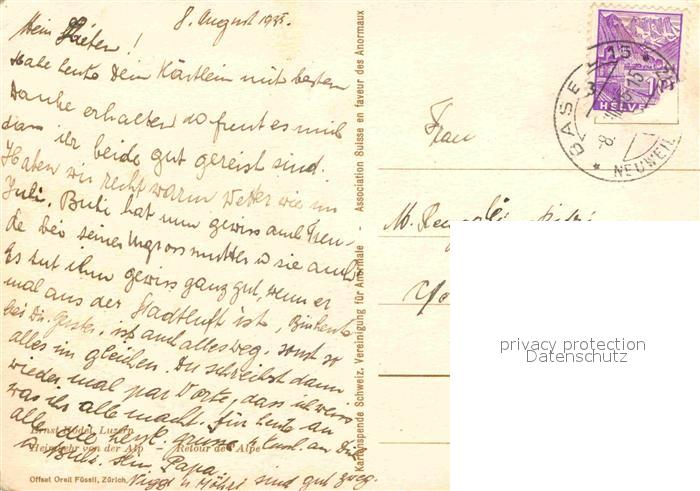 8. August 1935.
Mein Lieber !
Habe heute Dein Kärtlein mit besten
Danke erhalten so freut es mich
dass ihr beide gut gereist sind.
Haben wir recht warm Wetter wie im
Juli. Bubi hat nun gewiss auch Freu-
de bei seiner Urgrossmutter u sie auch
Es tut ihm gewiss ganz gut, wenn er
mal aus der Stadtluft ist,
bei Dir. ist auch alles weg. sonst so
alles im gleichen. Du schreibst dann
wieder mal par Worte, dass ich weiss
was ihr alle macht. für heute an
alle herzl. grüsse u Kuss. an Dich
u Bubi. Dein Papa.
sind gut zweg.
Ernst Hodel, Luzern
Heimkehr von der Alp — Retour de l'Alpe
Offset Orell Füssli, Zürich.
Kartenspende Schweiz. Vereinigung für Anormale - Association Suisse en faveur des Anormaux
Frau
M.
HELVE
BASEL 15
NEUWEIL
privacy protection
Datenschutz